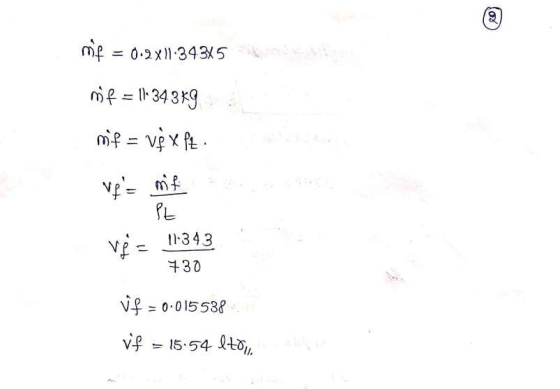 ②
ṁf = 0.2x11.343x5
ṁf = 11.343kg
ṁf = v̇f x ρt.
v̇f = ṁf / ρt
v̇f = 11.343 / 730
v̇f = 0.015538
v̇f = 15.54 ltr,,